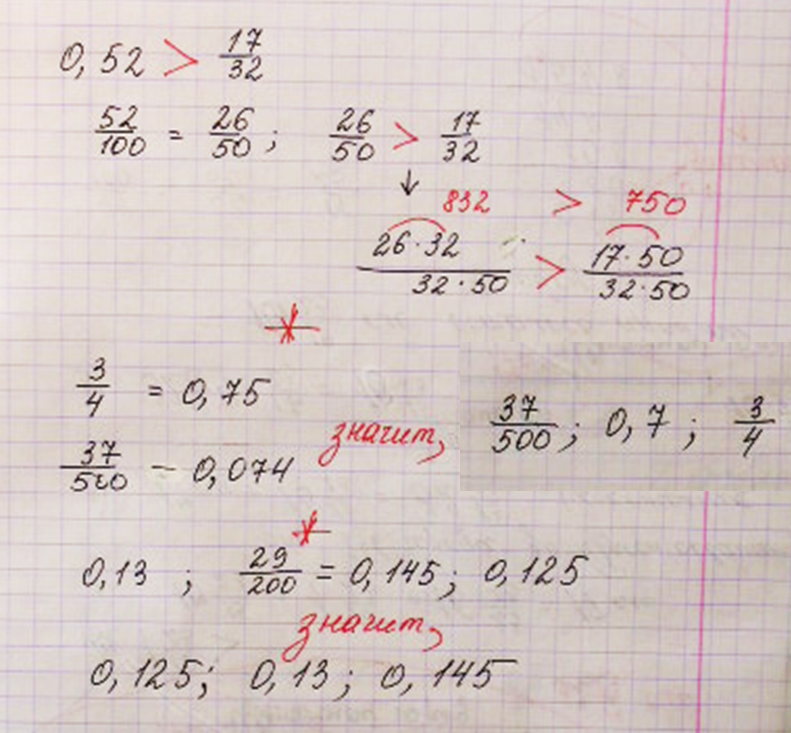 0,52 > 17/32
52/100 = 26/50; 26/50 > 17/32
↓
832 > 750
26·32/32·50 > 17·50/32·50
3/4 = 0,75
37/500 - 0,074
значит,
37/500; 0,7; 3/4
0,13 ; 29/200 = 0,145; 0,125
значит,
0,125; 0,13; 0,145